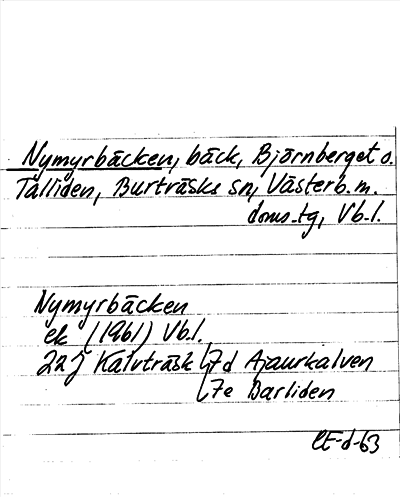 Nymyrbäcken, bäck, Björnberget o.
Talliden, Burträsks sn, Västerb. m.
doms.tg, Vb.l.
Nymyrbäcken
ek (1961) Vb.l.
22J Kalvträsk 7d Ajaurkalven
7e Barliden
CE-d-63